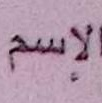 الإسم